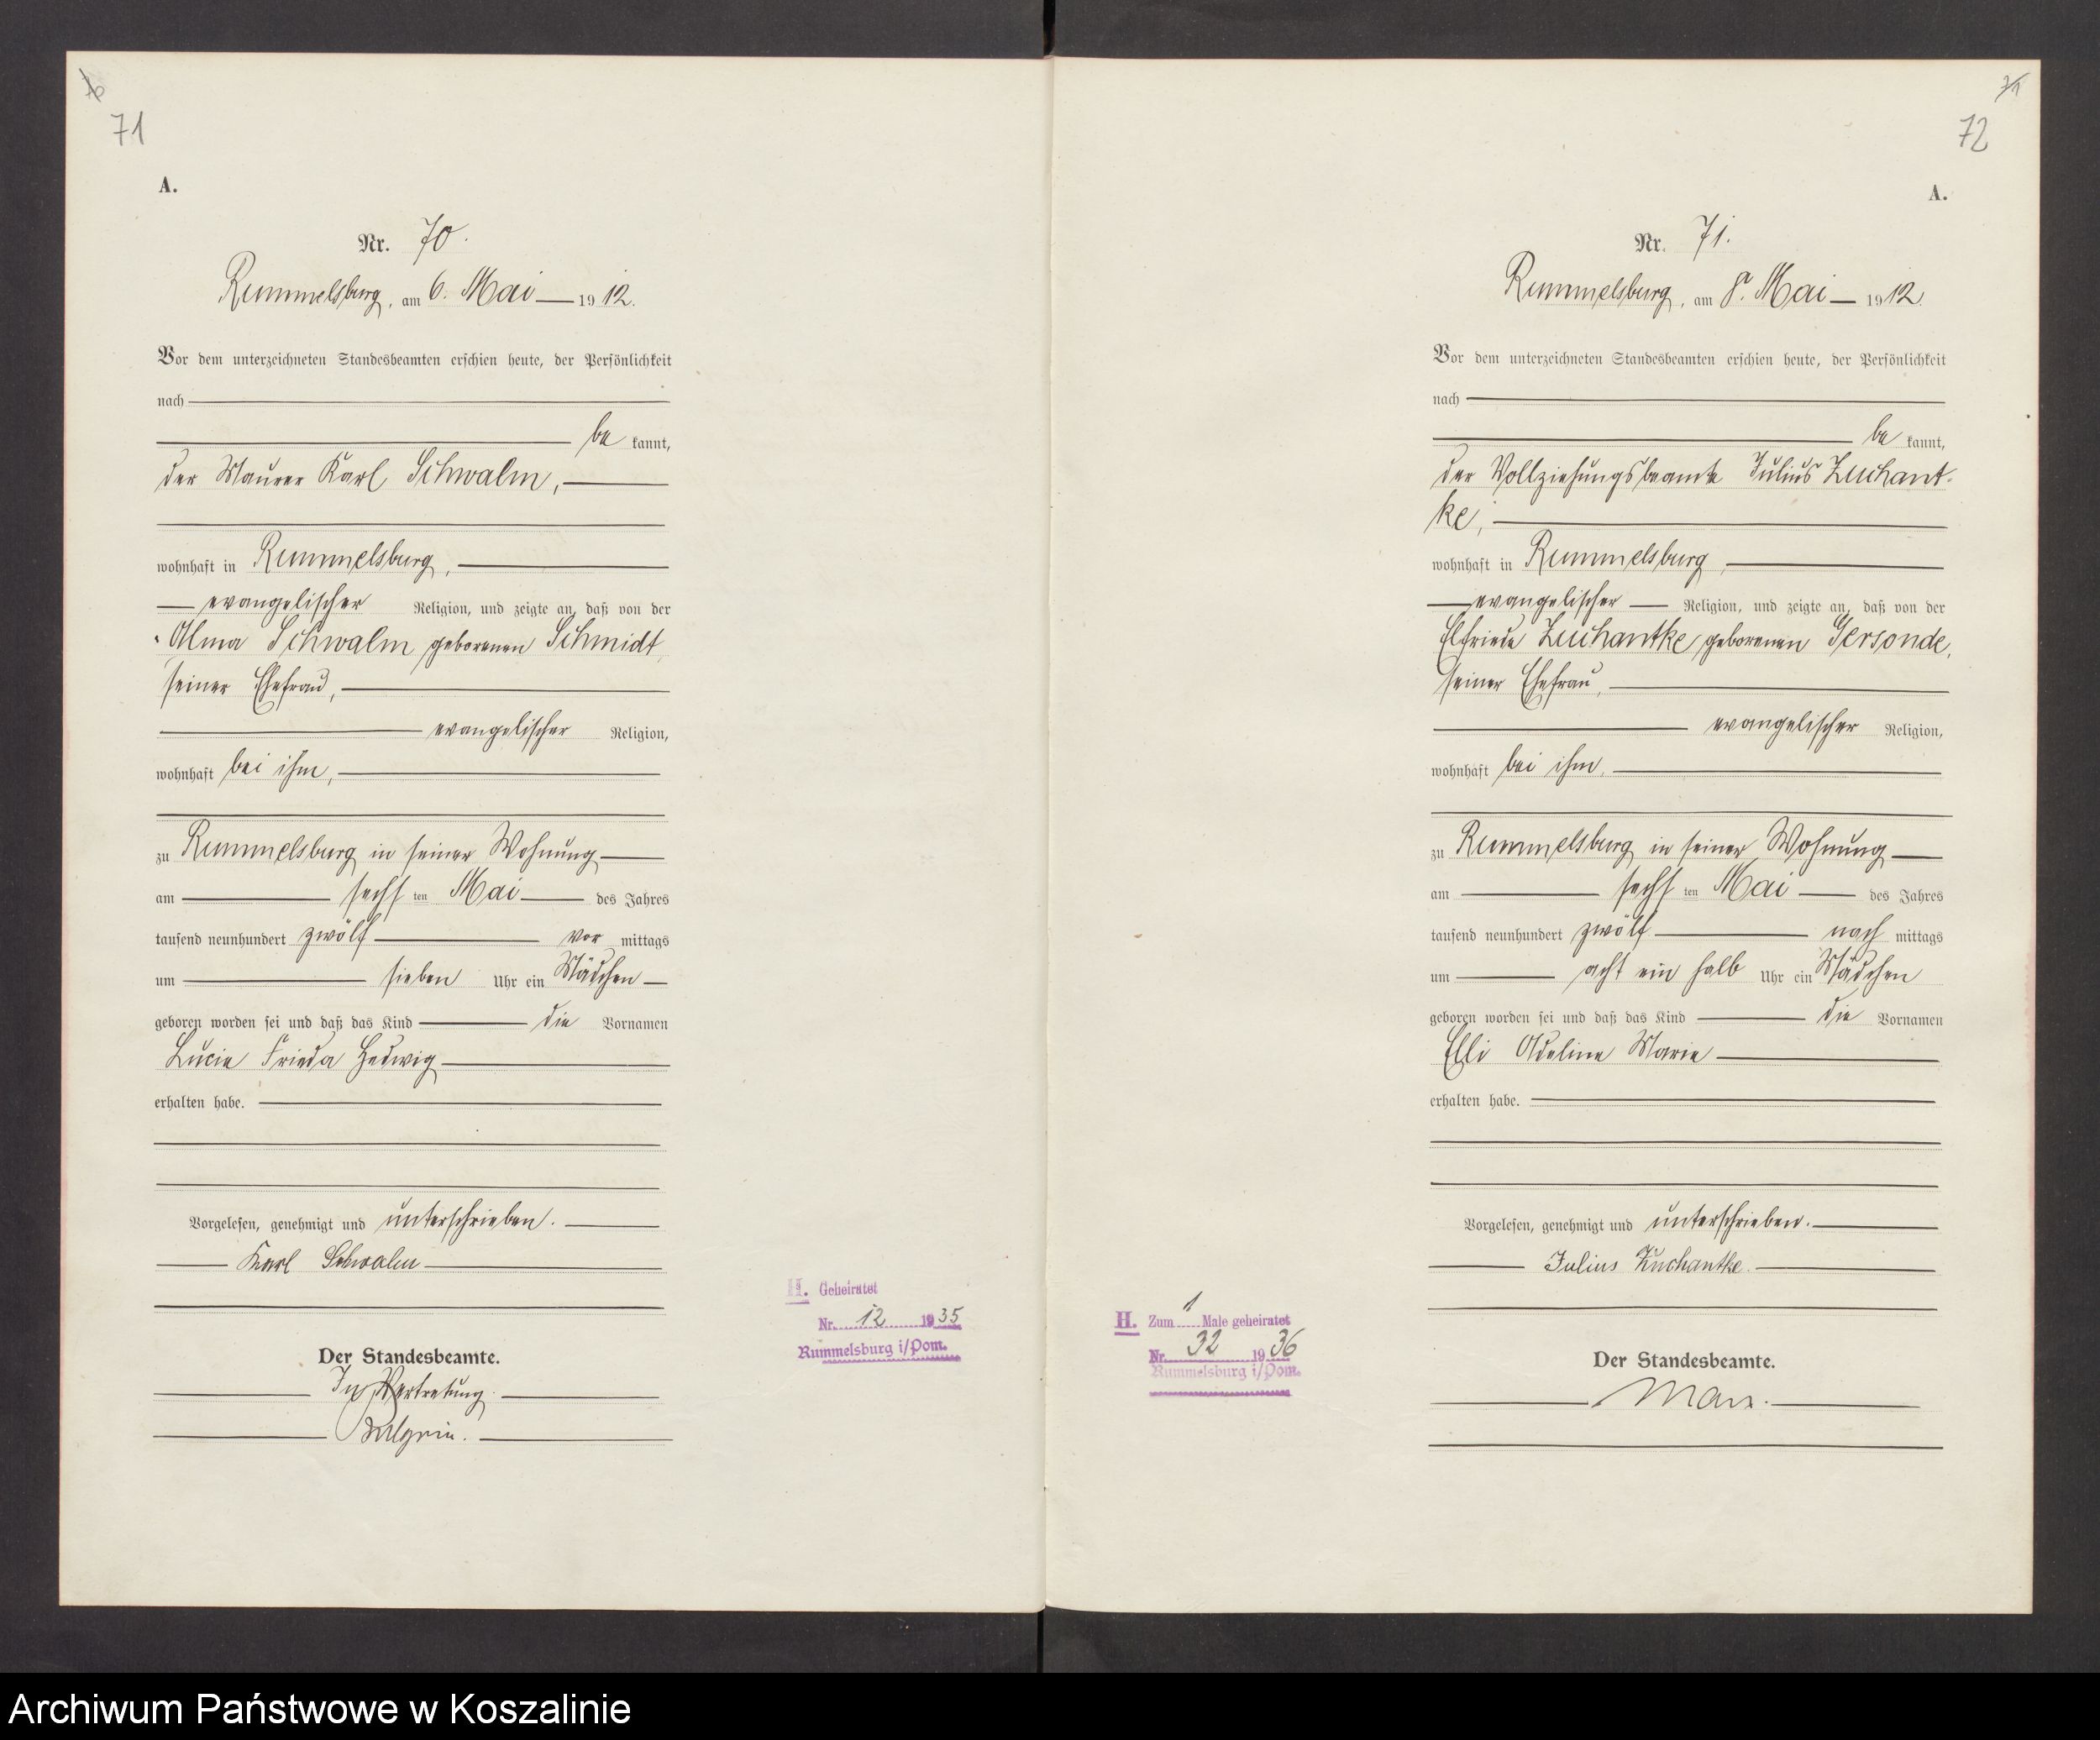 70
71
A.
Nr. 70.
Rummelsburg, am 6. Mai 1912.
Vor dem unterzeichneten Standesbeamten erschien heute, der Persönlichkeit
nach
be kannt,
der Maurer Karl Schwalm,
wohnhaft in Rummelsburg,
evangelischer Religion, und zeigte an, daß von der
Alma Schwalm geborenen Schmidt,
seiner Ehefrau,
evangelischer Religion,
wohnhaft bei ihm,
zu Rummelsburg in seiner Wohnung
am sechs ten Mai des Jahres
tausend neunhundert zwölf vor mittags
um sieben Uhr ein Mädchen
geboren worden sei und daß das Kind die Vornamen
Lucie Frieda Hedwig
erhalten habe.
Vorgelesen, genehmigt und unterschrieben.
Karl Schwalm
Der Standesbeamte.
In Vertretung.
H. Geheiratet
Nr. 12 1935
Rummelsburg i/Pom.
71
72
A.
Nr. 71.
Rummelsburg, am 8. Mai 1912.
Vor dem unterzeichneten Standesbeamten erschien heute, der Persönlichkeit
nach
be kannt,
der Vollziehungsbeamte Julius Zuchant-
ke,
wohnhaft in Rummelsburg,
evangelischer Religion, und zeigte an, daß von der
Elfriede Zuchantke geborenen Gersonde,
seiner Ehefrau,
evangelischer Religion,
wohnhaft bei ihm,
zu Rummelsburg in seiner Wohnung
am sechs ten Mai des Jahres
tausend neunhundert zwölf nach mittags
um acht ein halb Uhr ein Mädchen
geboren worden sei und daß das Kind die Vornamen
Elli Adeline Marie
erhalten habe.
Vorgelesen, genehmigt und unterschrieben.
Julius Zuchantke.
Der Standesbeamte.
H. Zum 1 Male geheiratet
Nr. 32 1936
Rummelsburg i/Pom.
Archiwum Państwowe w Koszalinie